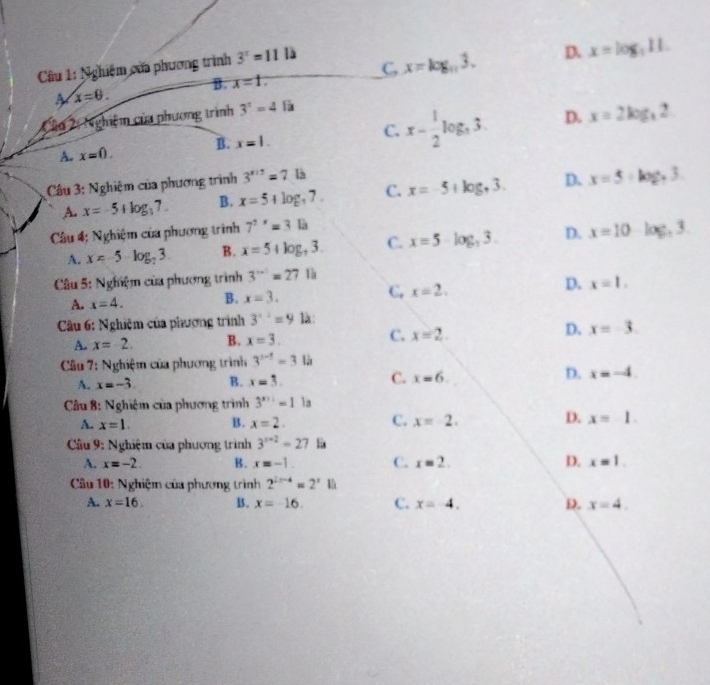 Câu 1: Nghiệm của phương trình 3ˣ = 11 là
A. x = 0. B. x = 1. C. x = log₁₁ 3. D. x = log₃ 11.
Câu 2: Nghiệm của phương trình 3ˣ = 4 là
A. x = 0. B. x = 1. C. x = 1/2 log₂ 3. D. x = 2 log₃ 2.
Câu 3: Nghiệm của phương trình = 7 là
A. x = -5 + log₃ 7. B. x = 5 + log₃ 7. C. x = -5 + log₇ 3. D. x = 5 + log₇ 3.
Câu 4: Nghiệm của phương trình = 3 là
A. x = -5 - log₇ 3. B. x = 5 + log₇ 3. C. x = 5 - log₇ 3. D. x = 10 - log₇ 3.
Câu 5: Nghiệm của phương trình = 27 là
A. x = 4. B. x = 3. C. x = 2. D. x = 1.
Câu 6: Nghiệm của phương trình = 9 là:
A. x = -2. B. x = 3. C. x = 2. D. x = -3.
Câu 7: Nghiệm của phương trình = 3 là
A. x = -3. B. x = 3. C. x = 6. D. x = -4.
Câu 8: Nghiệm của phương trình = 1 là
A. x = 1. B. x = 2. C. x = -2. D. x = -1.
Câu 9: Nghiệm của phương trình 3ˣ⁺² = 27 là
A. x = -2. B. x = -1. C. x = 2. D. x = 1.
Câu 10: Nghiệm của phương trình 2²ˣ⁻⁴ = 2ˣ là
A. x = 16. B. x = -16. C. x = -4. D. x = 4.